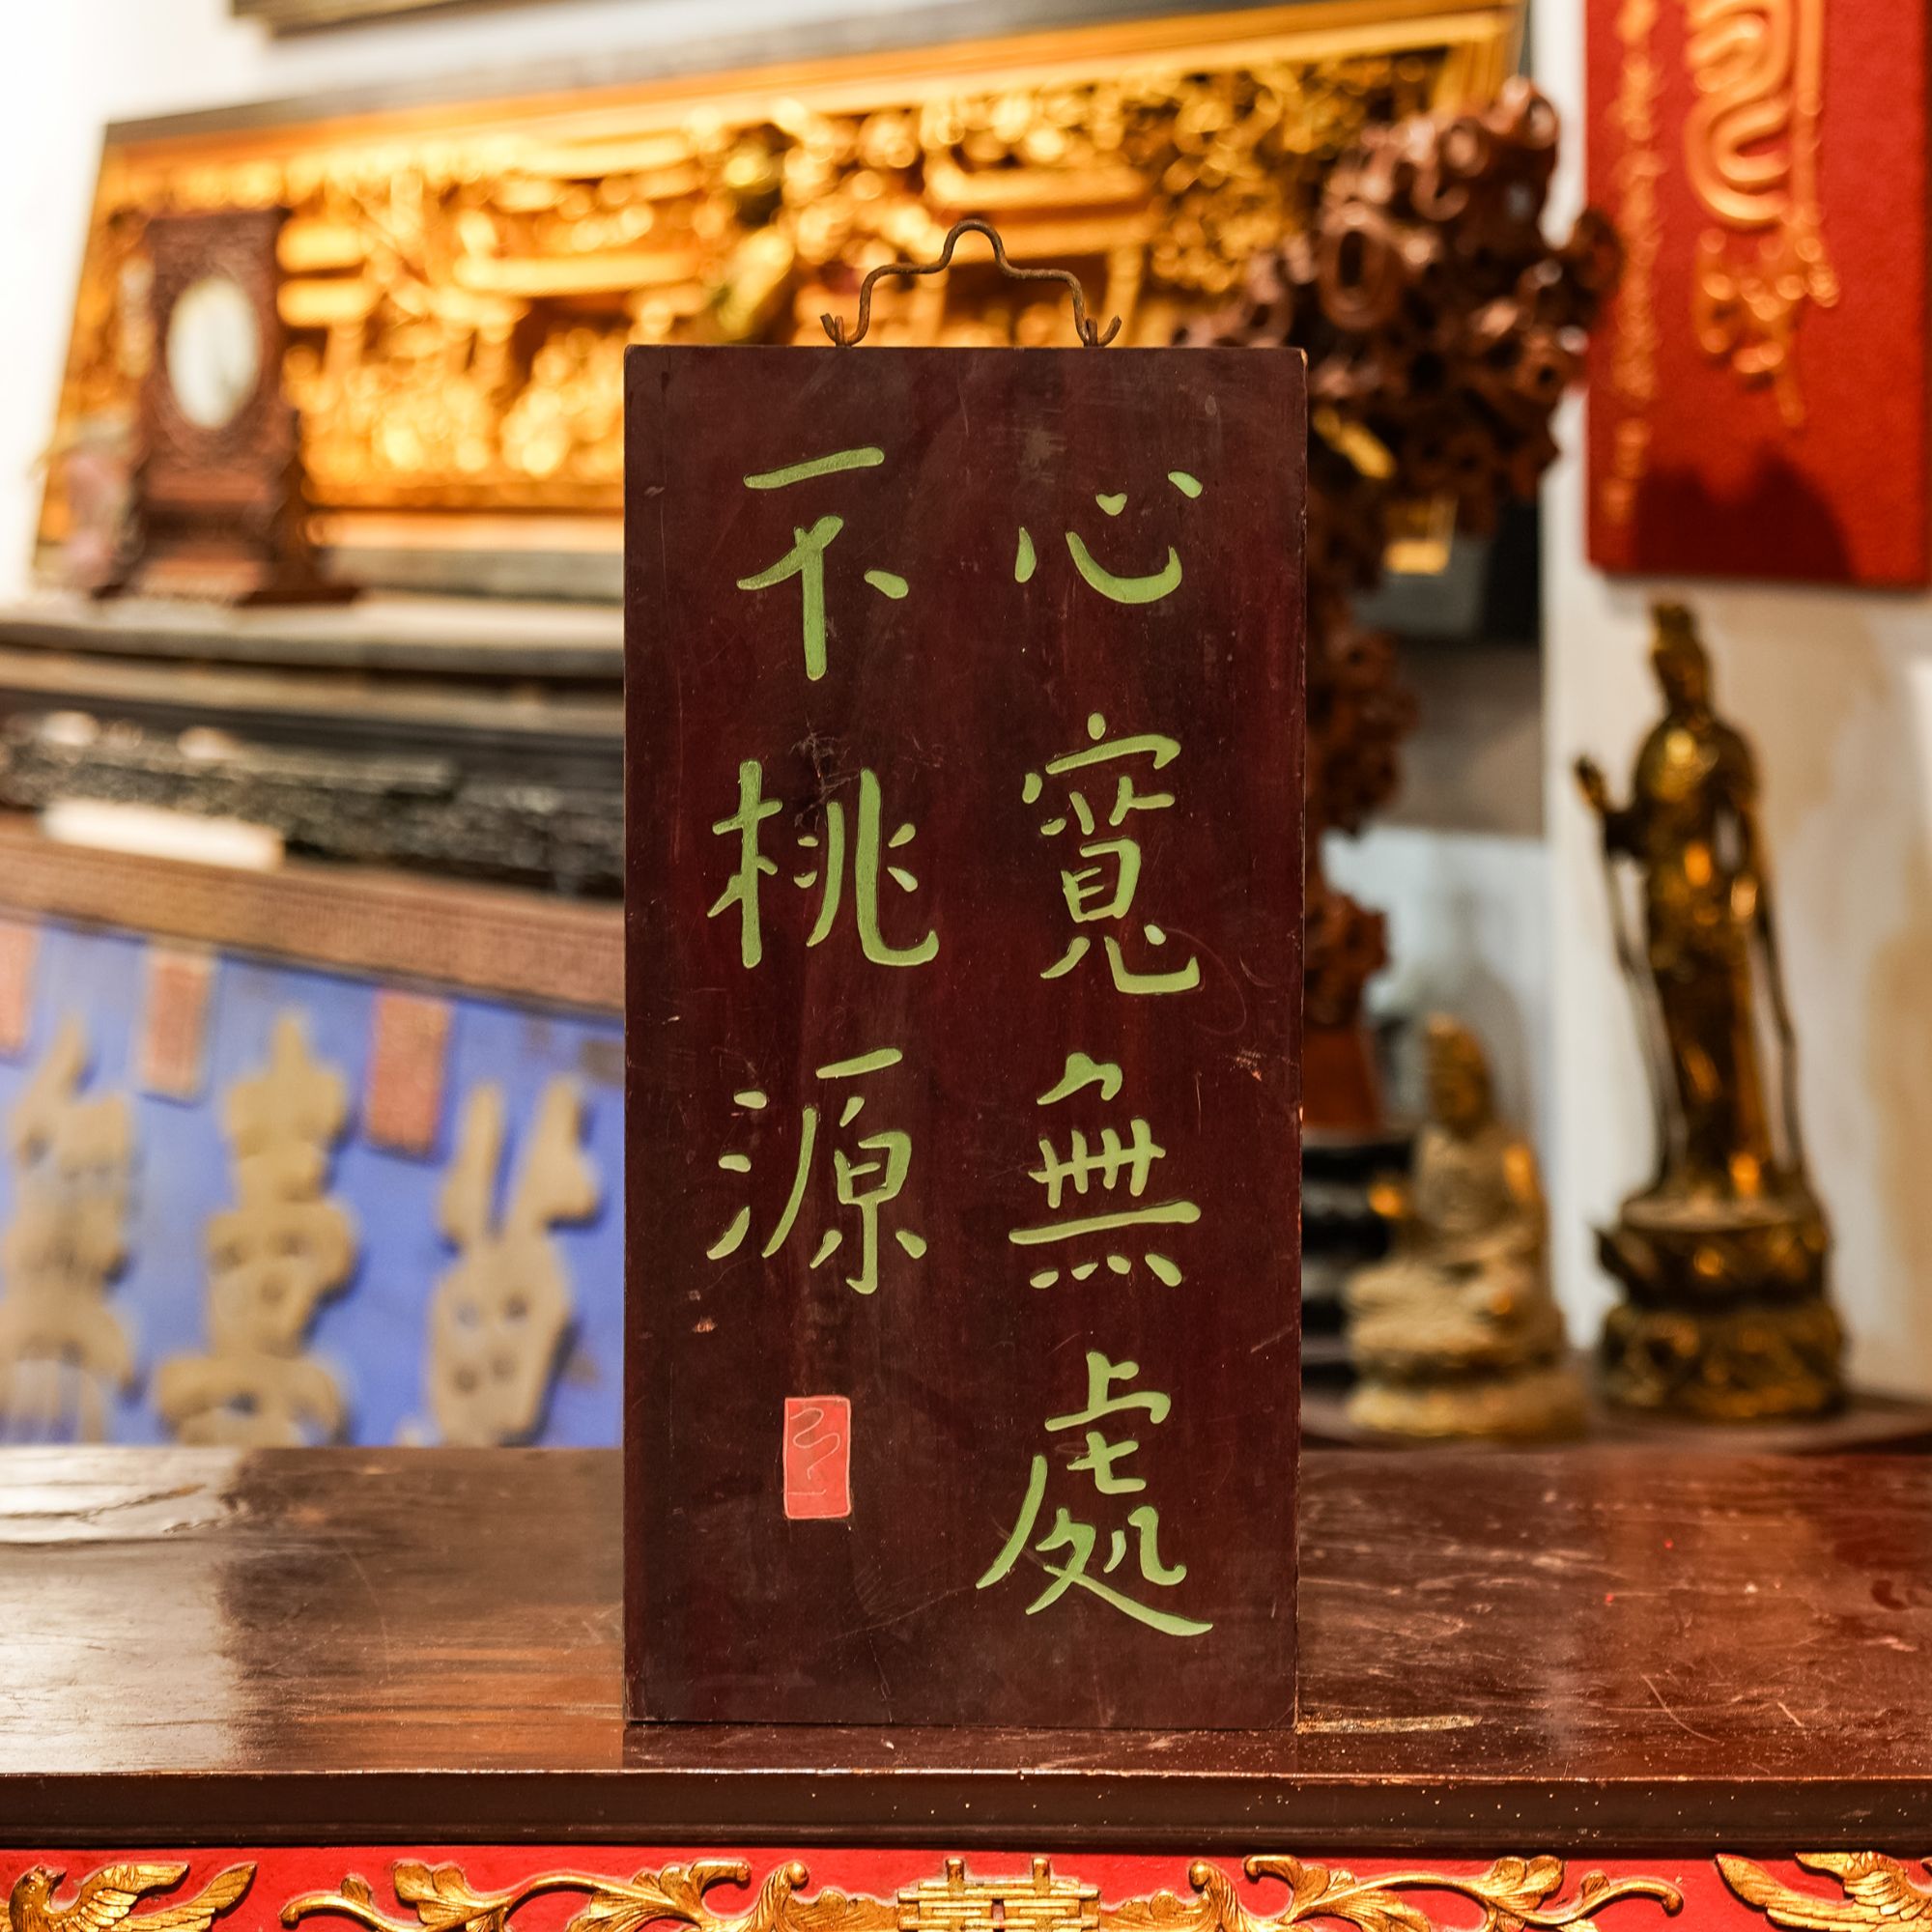 心寬無處
不桃源
囍